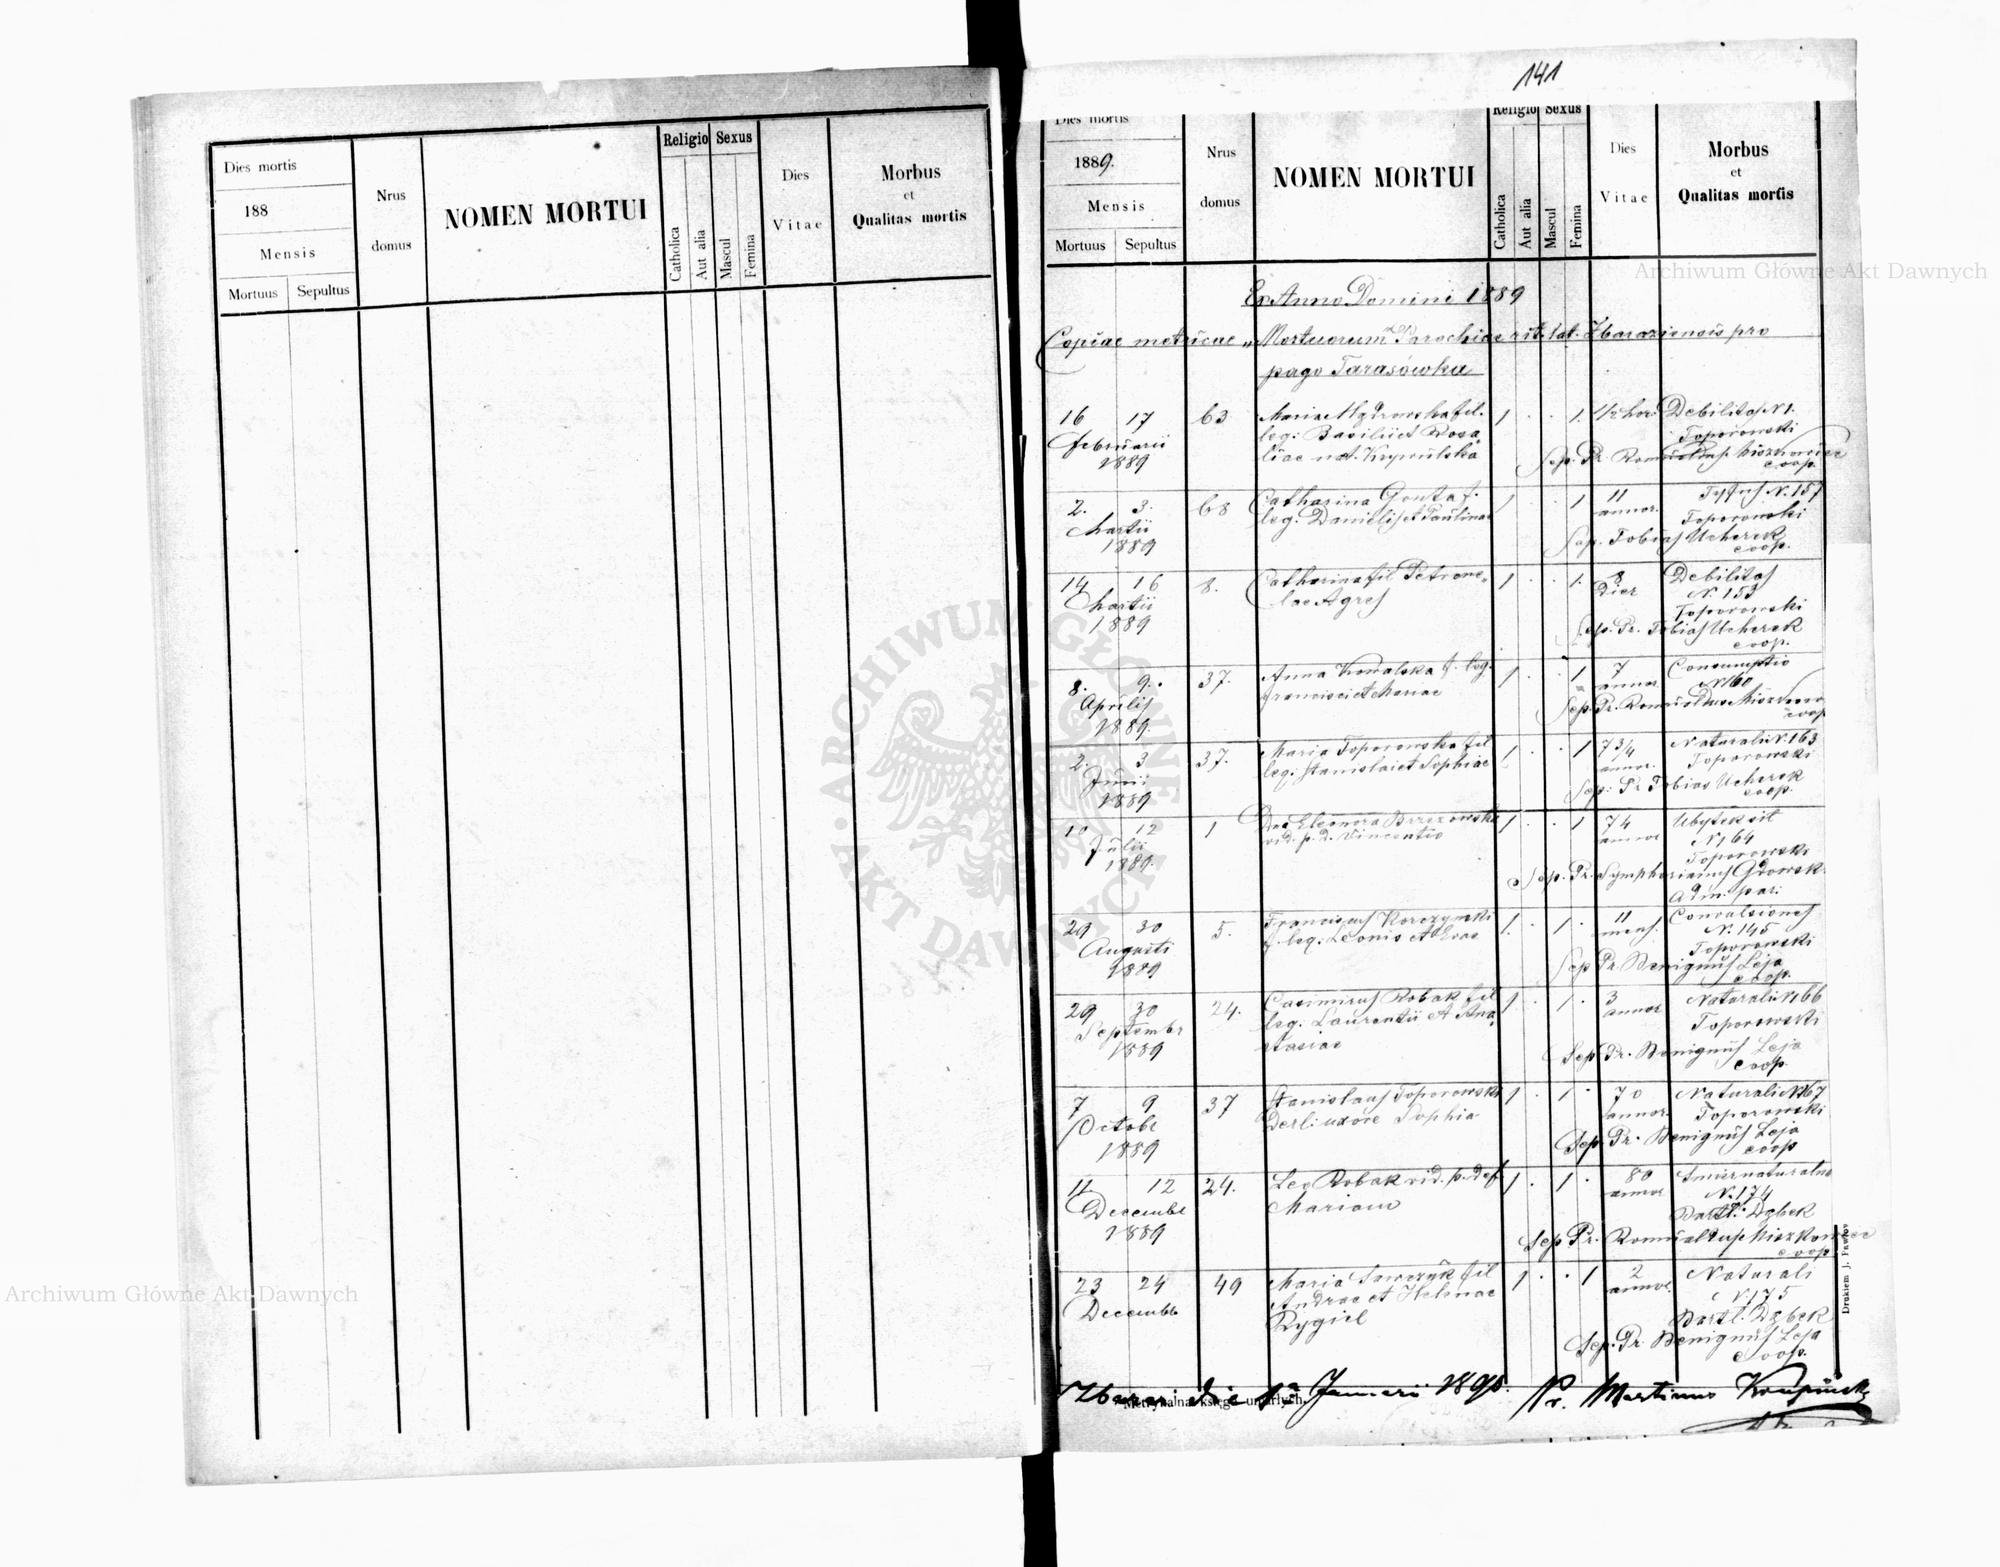 Dies mortis
188
Mensis
Mortuus Sepultus
Nrus
domus
NOMEN MORTUI
Religio Sexus
Catholica
Aut alia
Mascul
Femina
Dies
Vitae
Morbus
et
Qualitas mortis
141
Dies mortis
1889.
Mensis
Mortuus Sepultus
Nrus
domus
NOMEN MORTUI
Religio Sexus
Catholica
Aut alia
Mascul
Femina
Dies
Vitae
Morbus
et
Qualitas mortis
Ex Anno Domini 1889
Copiae metricae Mortuorum Parochiae rit. lat. Zbaraziensis pro
pago Tarasówka
16 17 63 Maria fil. 1 · · 1. 1/2 hor. Debilitas N 1.
Februarii leg: Basilii et Rosa Toporowski
1889 liae nat. Krywulska Sep. Pr. coop.
2. 3. 68 Catharina Gonta f. 1 · · 1 11 annor. Tyfus N. 157
Martii leg. Danielis et Paulinae Toporowski
1889 Sep. Tobias Ucherek
coop.
14 16 8. Catharina fil Petrone 1 · · 1. 8 Dier Debilitas
Martii lae Agres N. 153
1889 Toporowski
Sep. Pr. Tobias Ucherek
coop.
8. 9. 37. Anna Kowalska f. leg. 1 · · 1 7 annor Consumptio
Aprilis Francisci et Mariae N 160
1889. Sep. Pr. Romualdus
coop
2. 3 37. Maria Toporowska fil 1 · · 1 73/4 annor. Naturali N. 163
Junii leg. Stanislai et Sophiae Toporowski
1889 Sep: Pr Tobias Ucherek
coop.
10 12 1 Dna Eleonora Brzezowska 1 · · 1 74 annor Ubytek sił
Julii vid. p. d. Vincentio N 164
1889. Toporowski
Sep. Pr.
Adm. par.
29 30 5. Franciscus Korczynski 1. · 1 · 11 mens. Convulsiones
Augusti f leg. Leonis et Evae N. 145
1889 Toporowski
Sep Pr. Benignus Leja
coop.
29 30 24. Casimirus Robak fil 1 · 1 · 3 annor Naturali N 166
Septembr leg. Laurentii et Ana Toporowski
1889 stasiae
Sep. Pr. Benignus Leja
coop.
7 9 37 Stanislaus Toporowski 1 · 1 · 70 annor. Naturali N 167
Octobr uxore Sophia Toporowski
1889 Sep. Pr. Benignus Leja
coop
11 12 24. Leo Robak vid. p. def. 1 · 1 · 80 annor
Decembr Mariam N. 174
1889 Bartł. Dąbek
Sep Pr.
coop
23 24 49 Maria Sawczyk fil 1 · · 1 2 annor. Naturali
Decembr Andreae et Helenae N 175
Rygiel Bartł. Dąbek
Sep. Pr. Benignus Leja
Coop.
Metrykalna księga umarłych.
Zbaraz die 1a Januarii 1890. Pr. Martinus
Drukiem J. Pawłow
Archiwum Główne Akt Dawnych
Archiwum Główne Akt Dawnych
ARCHIWUM GŁÓWNE · AKT DAWNYCH ·